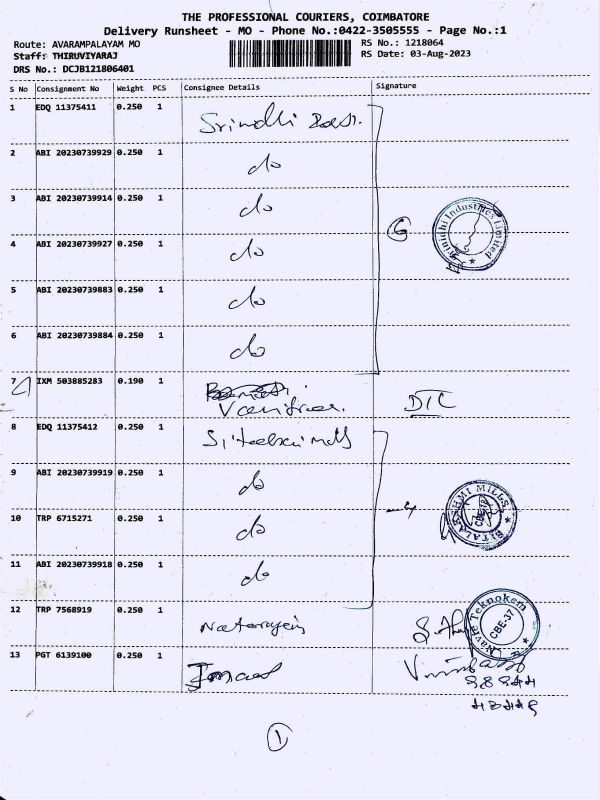 THE PROFESSIONAL COURIERS, COIMBATORE
Delivery Runsheet - MO - Phone No.:0422-3505555 - Page No.:1
Route: AVARAMPALAYAM MO
RS No.: 1218064
Staff: THIRUVIYARAJ
RS Date: 03-Aug-2023
DRS No.: DCJB121806401
S No Consignment No Weight PCS Consignee Details Signature
1 EDQ 11375411 0.250 1
2 ABI 20230739929 0.250 1 do
3 ABI 20230739914 0.250 1 do
4 ABI 20230739927 0.250 1 do
6
Srinidhi Industries Limited
5 ABI 20230739883 0.250 1 do
6 ABI 20230739884 0.250 1 do
7 IXM 503885283 0.190 1
DTC
8 EDQ 11375412 0.250 1
9 ABI 20230739919 0.250 1 do
10 TRP 6715271 0.250 1 do
4
SITALAKSHMI MILLS
CBE-12
11 ABI 20230739918 0.250 1 do
12 TRP 7568919 0.250 1 Natarajan
Navia Teknokem
CBE-37
13 PGT 6139100 0.250 1
1